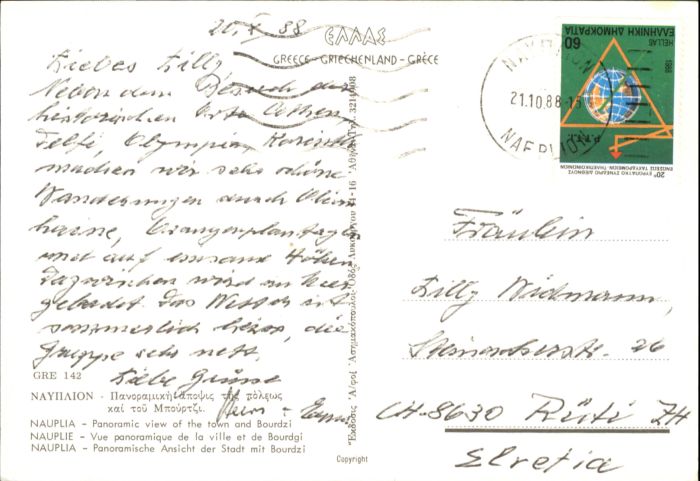 20.X 88
ΕΛΛΑΣ
GREECE - GRIECHENLAND - GRÈCE
Liebes Lilly
Neben dem Besuch der
historischen Orte Athen,
Delfi, Olympia, Korinth
machen wir sehr schöne
Wanderungen durch Oliven
haine, Orangenplantagen
und auf einsame Höhen
Dazwischen wird im Meer
gebadet. Das Wasser ist
sommerlich heiss, die
Gruppe sehr nett.
Liebe Grüsse
GRE 142
ΝΑΥΠΛΙΟΝ - Πανοραμική άποψις τής πόλεως
καί τοῦ Μπούρτζι.
NAUPLIA - Panoramic view of the town and Bourdzi
NAUPLIE - Vue panoramique de la ville et de Bourdgi
NAUPLIA - Panoramische Ansicht der Stadt mit Bourdzi
Copyright
60
ΕΛΛΗΝΙΚΗ ΔΗΜΟΚΡΑΤΙΑ
HELLAS
1988
ΝΑΥΠΛΙΟΝ
21.10.88
NAFPLIO
Fräulein
Lilly Widmann,
Steinacherstr. 26
CH-8630 Rüti ZH
Elvetia